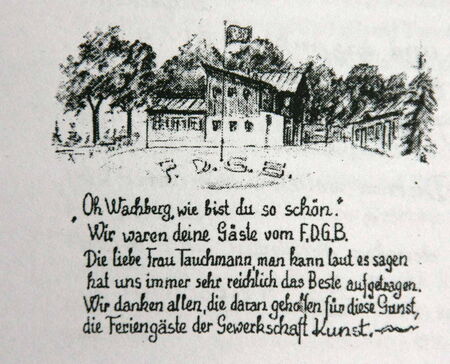 F. D. G. B.
„Oh Wachberg, wie bist du so schön.“
Wir waren deine Gäste vom F.D.G.B.
Die liebe Frau Tauchmann, man kann laut es sagen
hat uns immer sehr reichlich das Beste aufgetragen.
Wir danken allen, die daran geholfen für diese Gunst,
die Feriengäste der Gewerkschaft Kunst.